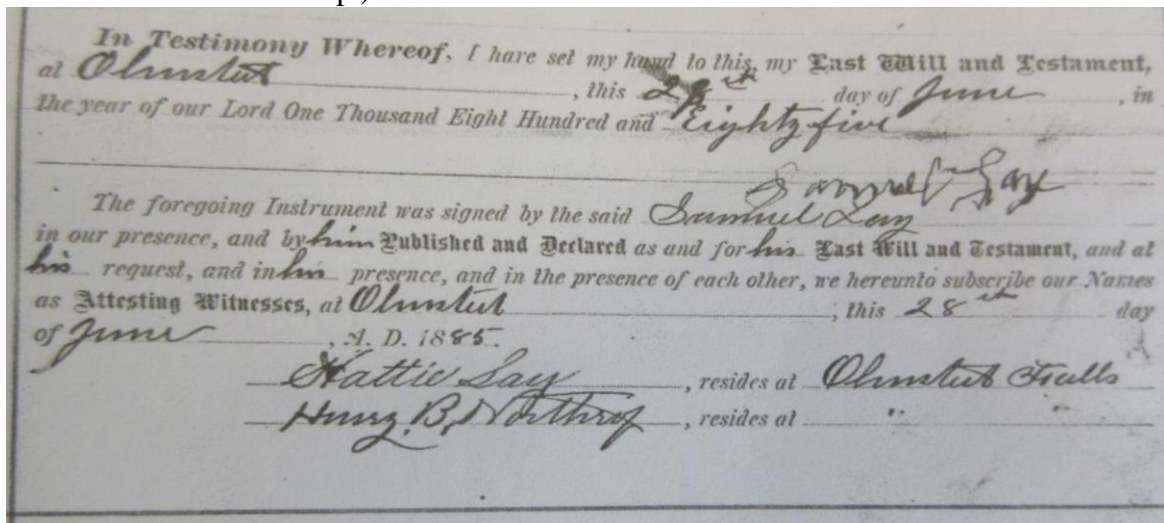 In Testimony Whereof, I have set my hand to this, my Last Will and Testament,
at Olmsted, this 28th day of June, in
the year of our Lord One Thousand Eight Hundred and Eighty five
Samuel Lay
The foregoing Instrument was signed by the said Samuel Lay
in our presence, and by him Published and Declared as and for his Last Will and Testament, and at
his request, and in his presence, and in the presence of each other, we hereunto subscribe our Names
as Attesting Witnesses, at Olmsted; this 28th day
of June, A. D. 1885.
Hattie Lay, resides at Olmsted Falls
Henry. B, Northrop, resides at " "